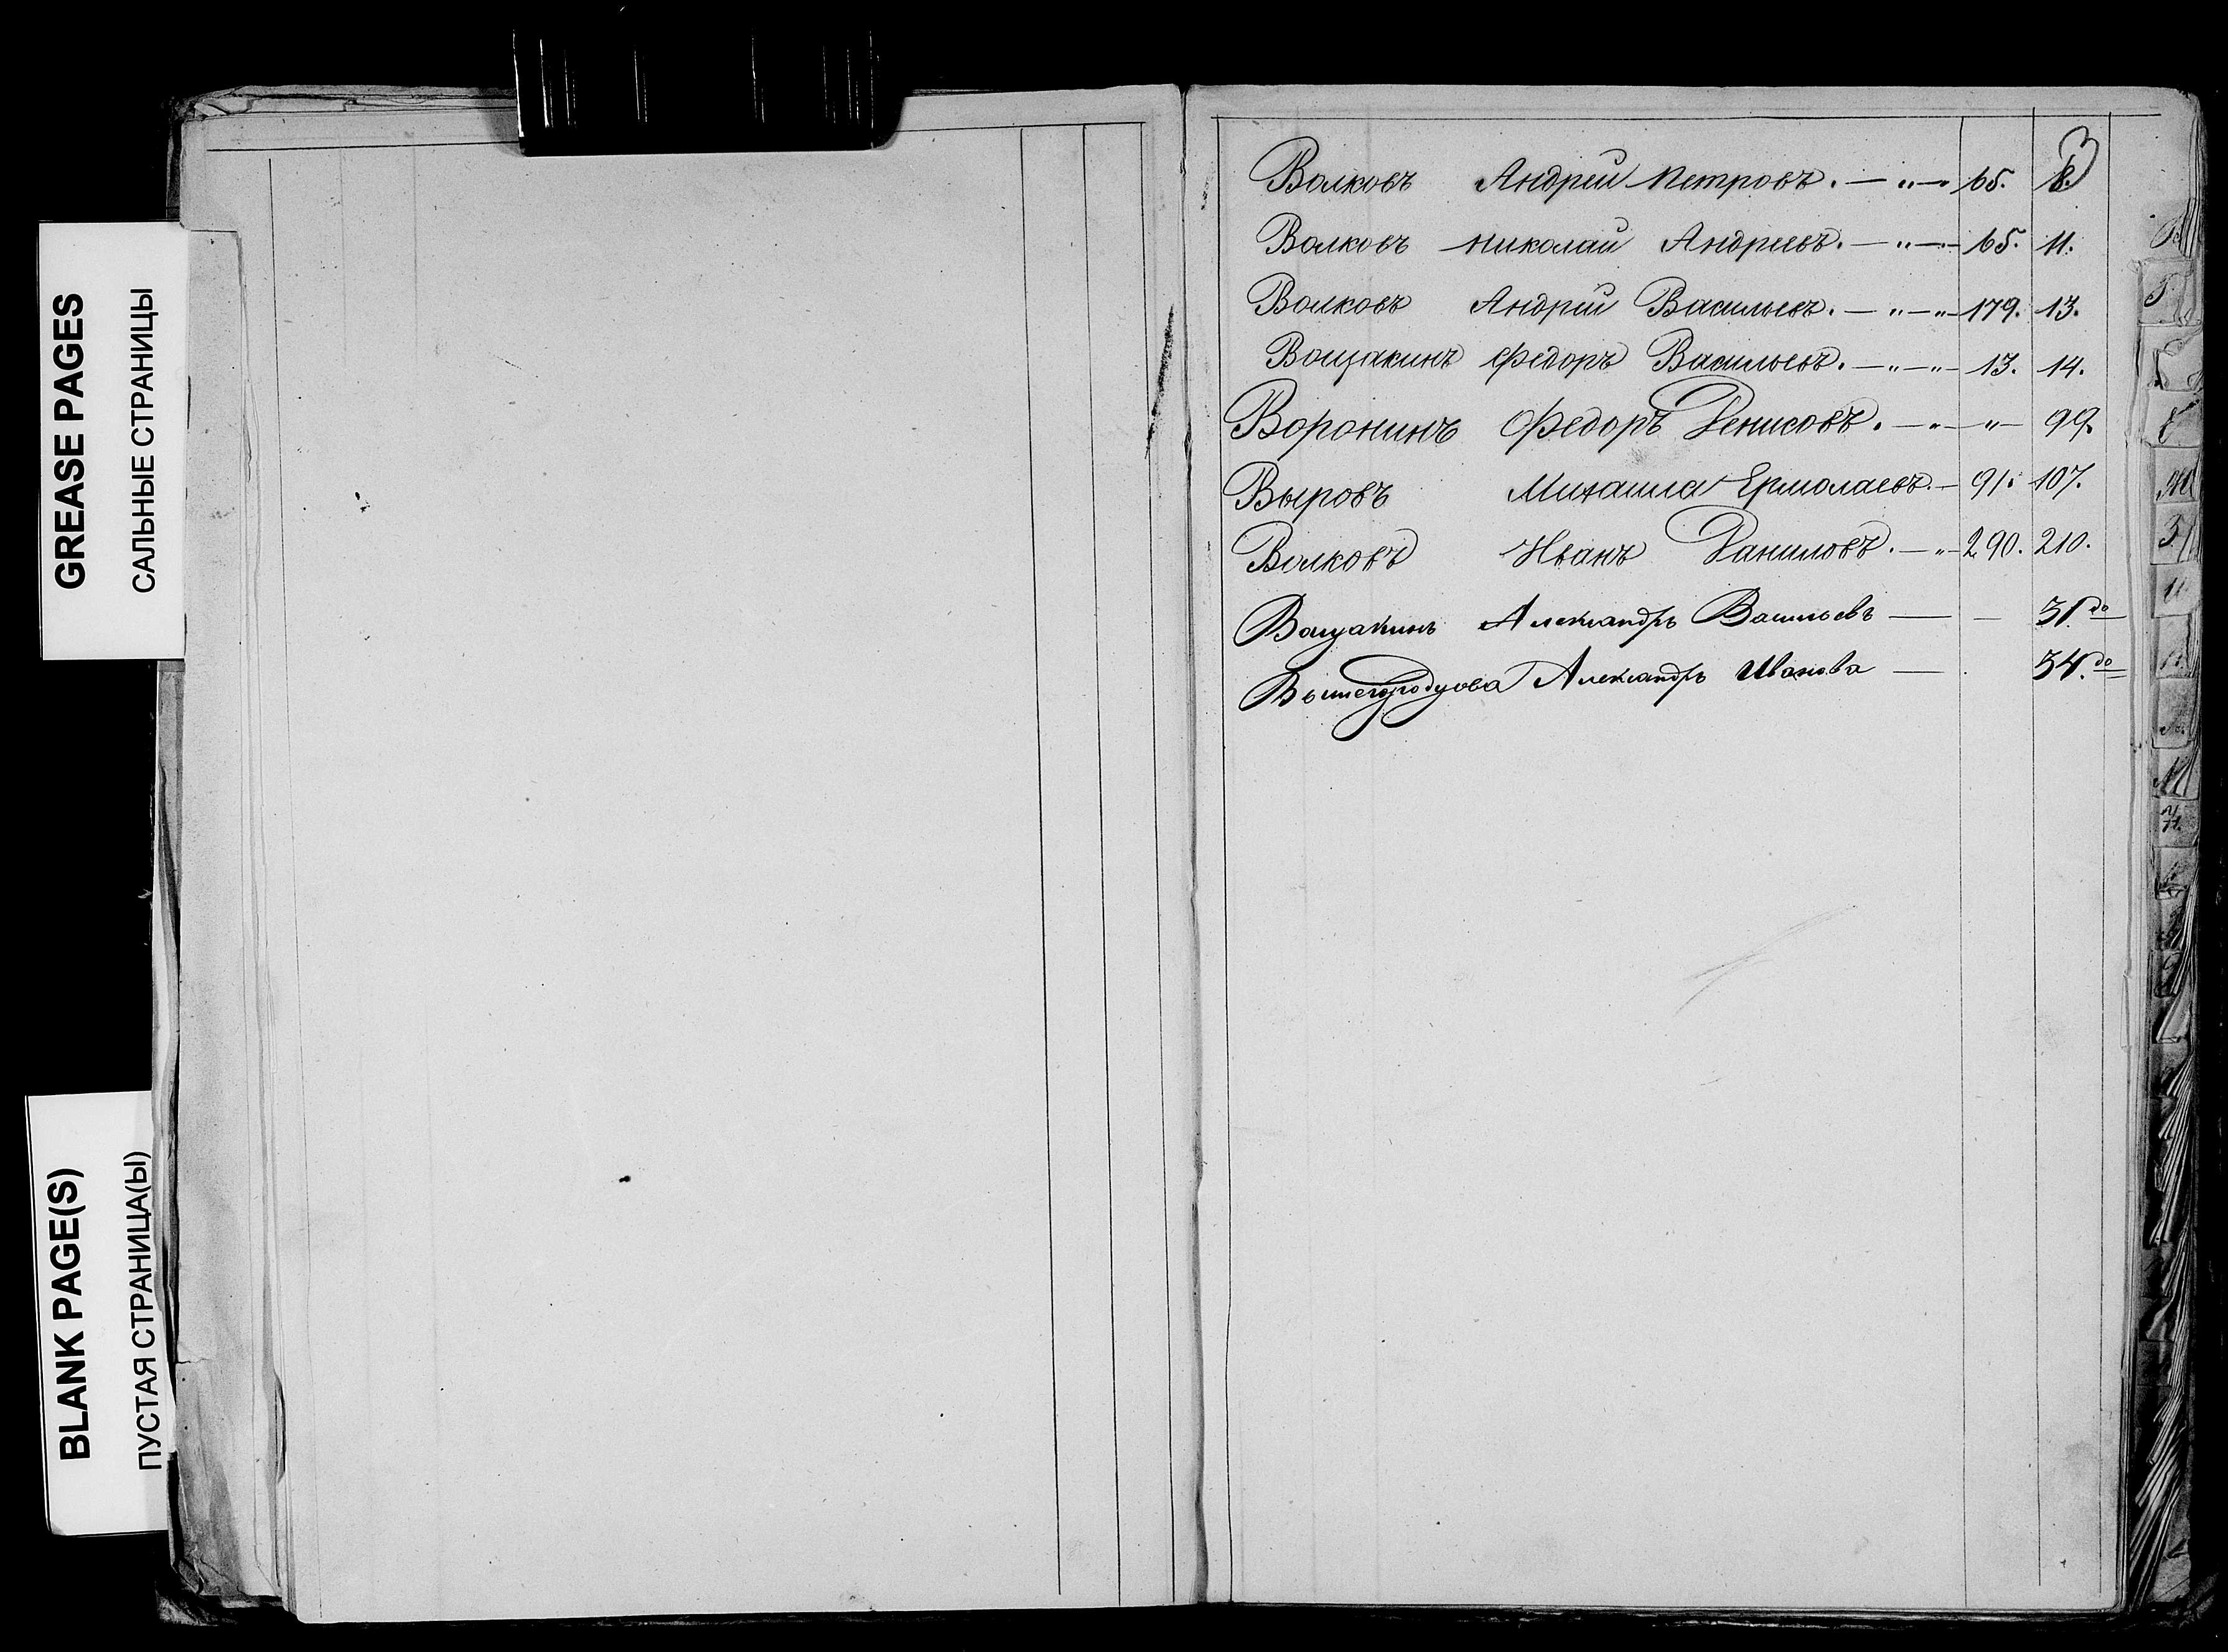 GREASE PAGES
САЛЬНЫЕ СТРАНИЦЫ
BLANK PAGE(S)
ПУСТАЯ СТРАНИЦА(Ы)
3
Волковъ Андрей Петровъ. — „ — „ 65. 8.
Волковъ Николай Андреевъ. — „ — 65. 11.
Волковъ Андрей Васильевъ. — „ — „ — 179. 13.
Вощакинъ Федоръ Васильевъ. — „ — „ — 13. 14.
Воронинъ Федоръ Денисовъ. — „ — „ — 99.
Выровъ Михаила Ермолаевъ. — 91. 107.
Волковъ Иванъ Даниловъ. — „ — 290. 210.
Вощакинъ Александръ Васильевъ — — 31 до
Вышегородцова Александръ Иванова — 34. до